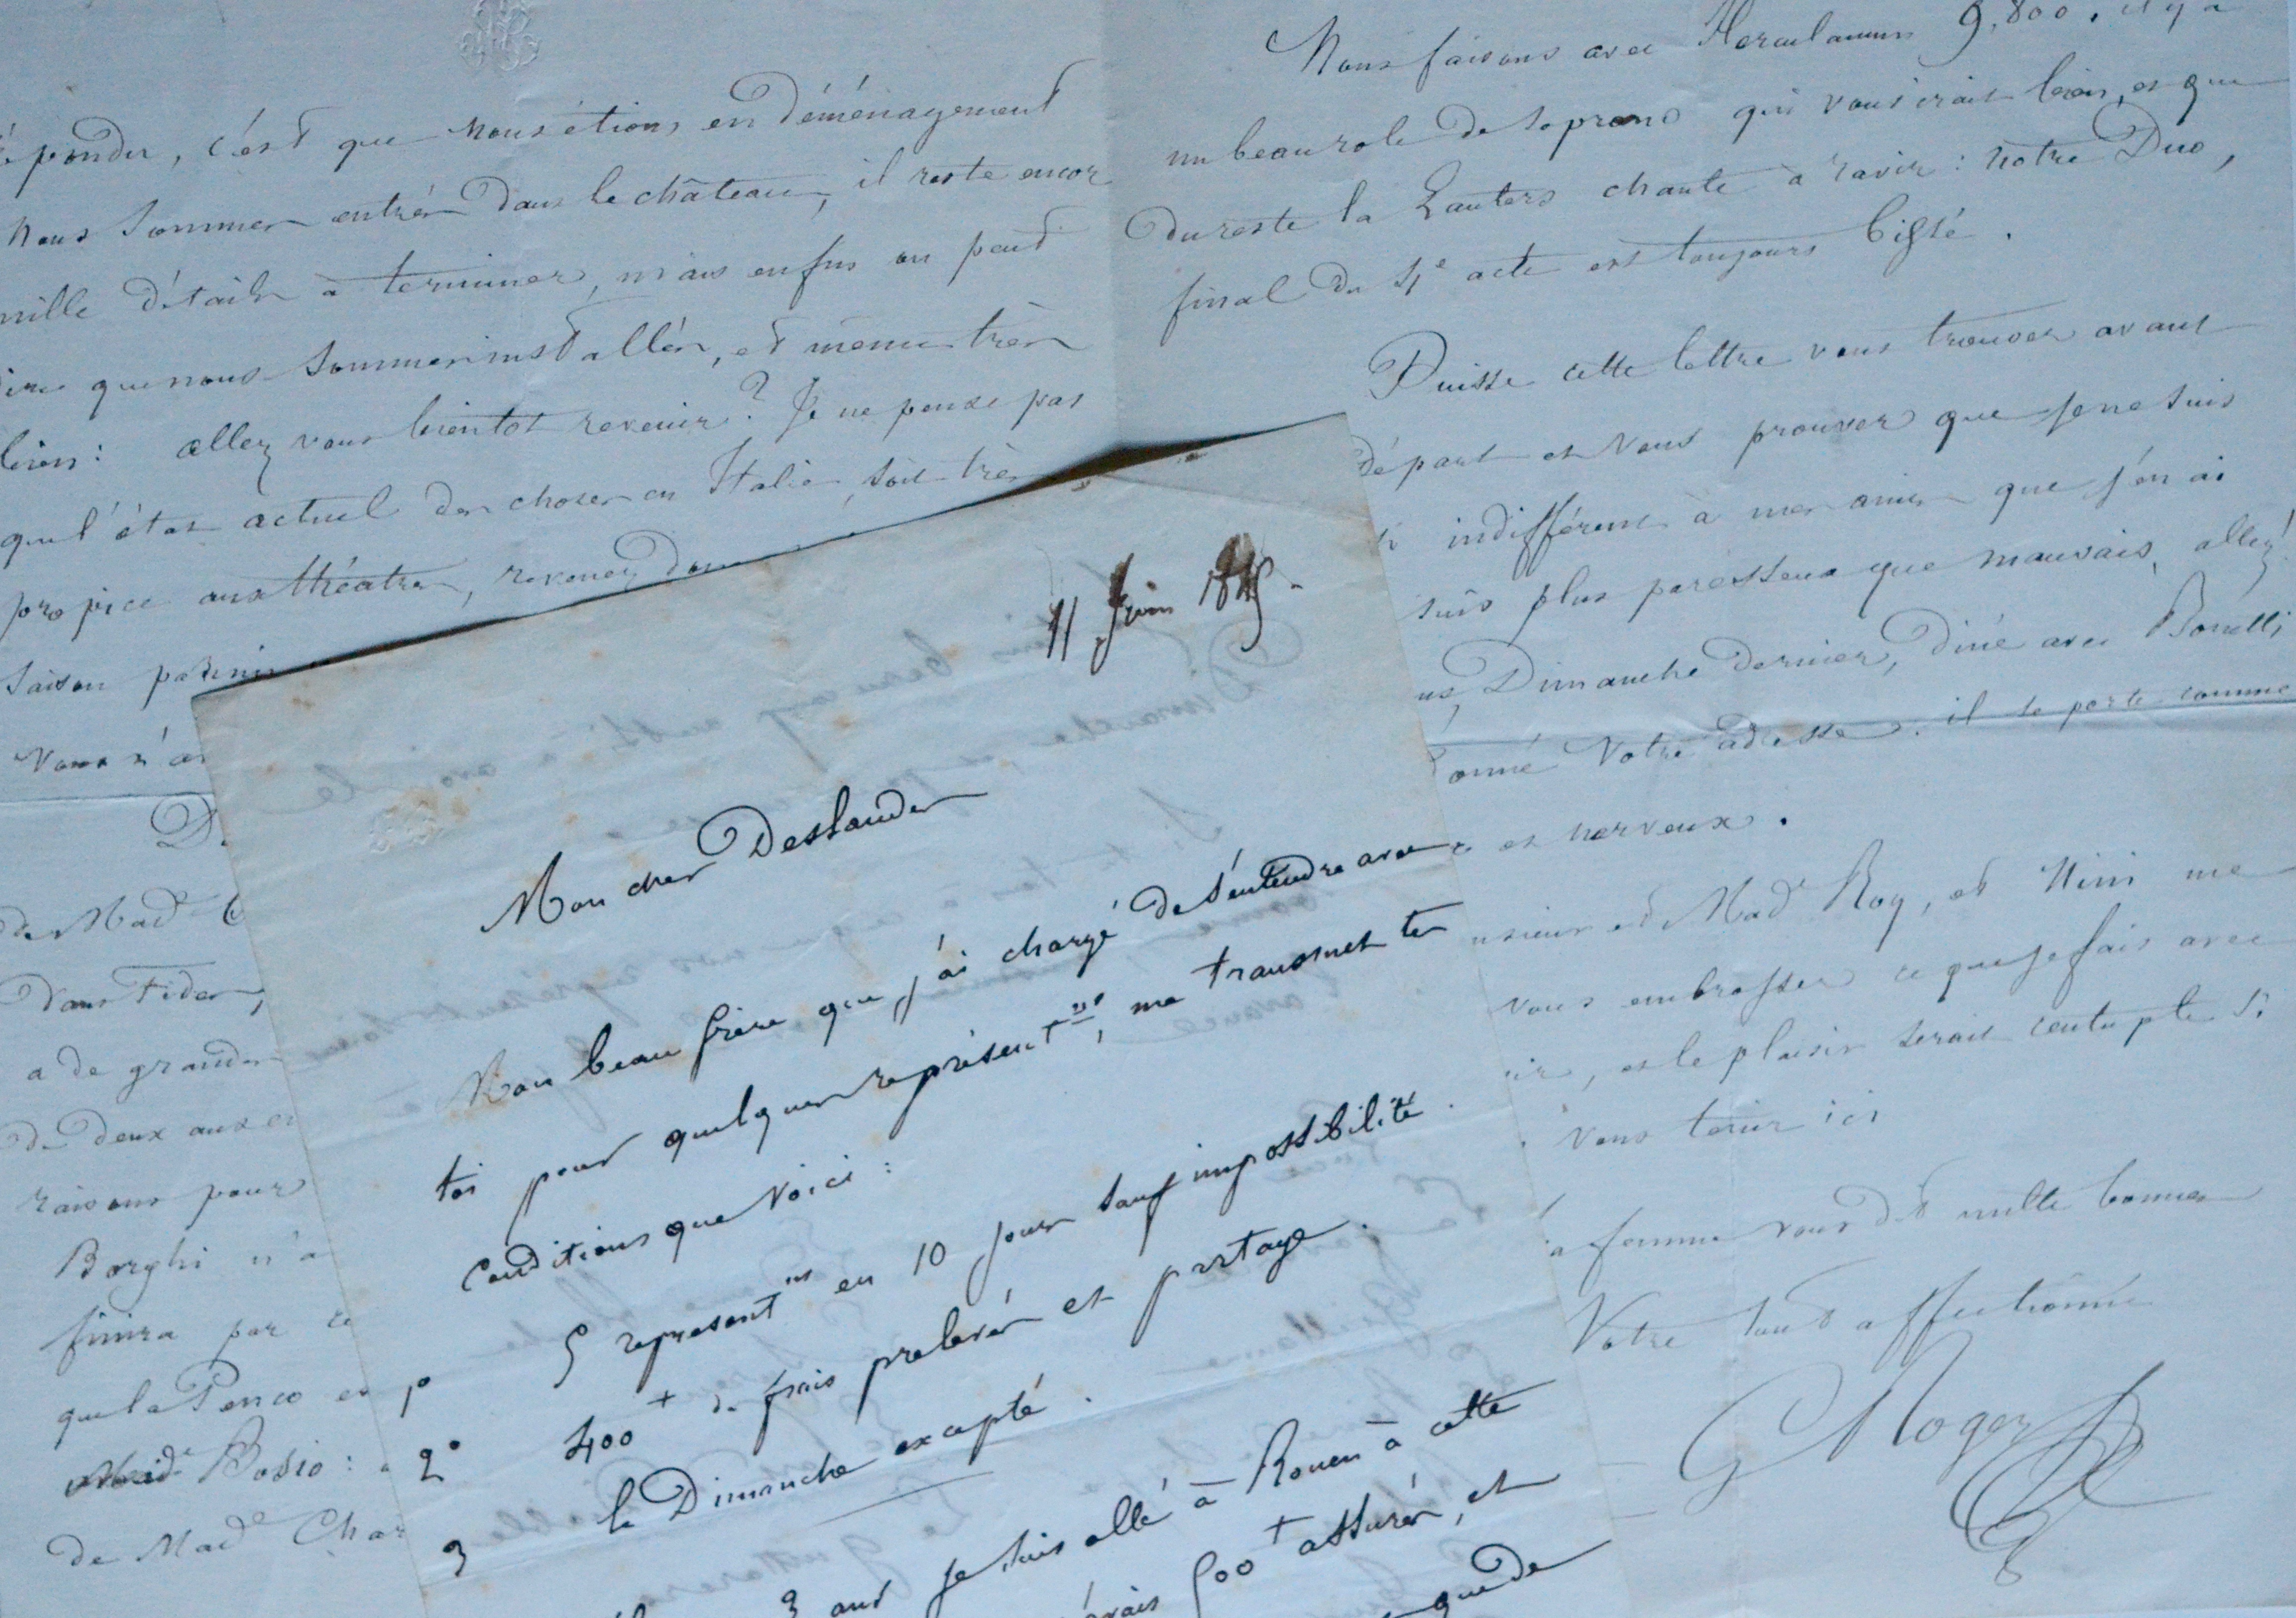 pondre, c'est que nous étions en déménagement
Nous sommes entrés dans le château, il reste encor
mille détails à terminer, mais enfin on peut
dire que nous sommes installés, et même très
bien : allez vous bientot revenir ? Je ne pense pas
que l'état actuel des choses en Italie soit très
propice aux théatres, revenez
saison
Vous n'a
de Mad
dans
a de grandes
de deux ans
raisons pour
Borghi n'a
finira par
que la Penco
Made Bosio :
de Made Char
Nous faisons avec Herculanum 9,800, il y a
un beau role de soprano qui vous irait bien, et que
du reste la Lauters chante à ravir : notre Duo,
final du 4e acte est toujours bissé.
Puisse cette lettre vous trouver avant
départ et vous prouver que je ne suis
indifférent à mes amis que j'en ai
suis plus paresseux que mauvais, allez !
Dimanche dernier, diné avec
donné votre adresse. il se porte comme
et nerveux.
et Made Roy, et Nini me
vous embrasser ce que je fais avec
, et le plaisir serait centuplé si
vous tenir ici
femme vous dit mille bonnes
Votre tout affectionné
G Roger
11 Juin
Mon cher Deslandes
Mon beau frère que j'ai chargé de s'entendre avec
toi pour quelques représentns, me transmet tes
conditions que voici :
1o 5 representns en 10 jours sauf impossibilité.
2o 400 + de frais prelevés et partage.
3 le Dimanche excepté.
3 ans je suis allé à Rouen à cette
500 + assurés, et
que de